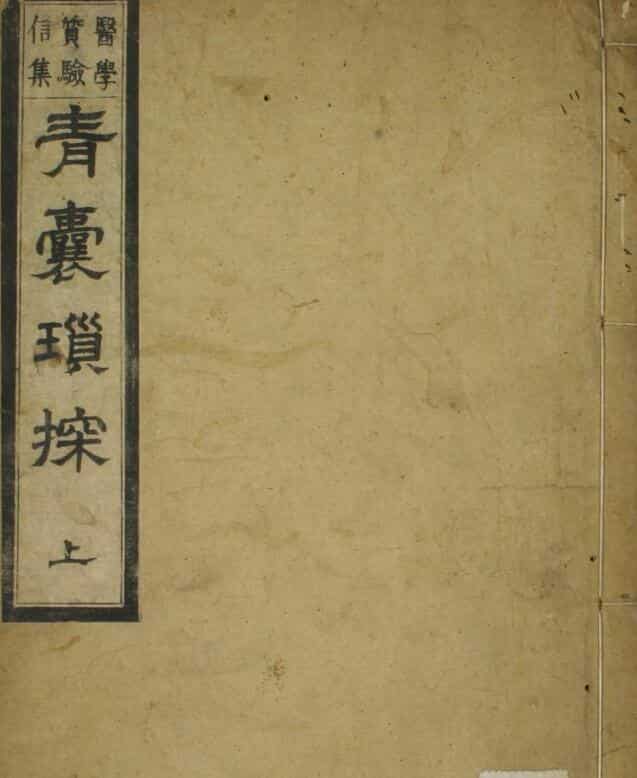 醫學
質驗
信集
青囊瑣探
上